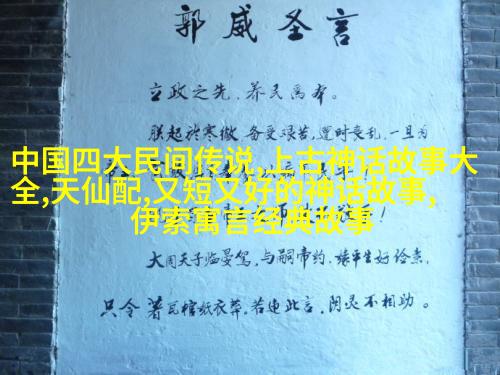 郭威圣言
立政之先，养民為本。
朕起於寒微，备受艰苦，遭时丧乱，一旦為
中国四大民间传说,上古神话故事大
全,天仙配,又短又好的神话故事,
伊索寓言经典故事
大周天子临晏驾，与嗣帝约，缘平生好俭素，
只令著瓦棺纸衣葬，若违此言，阴灵不相助。